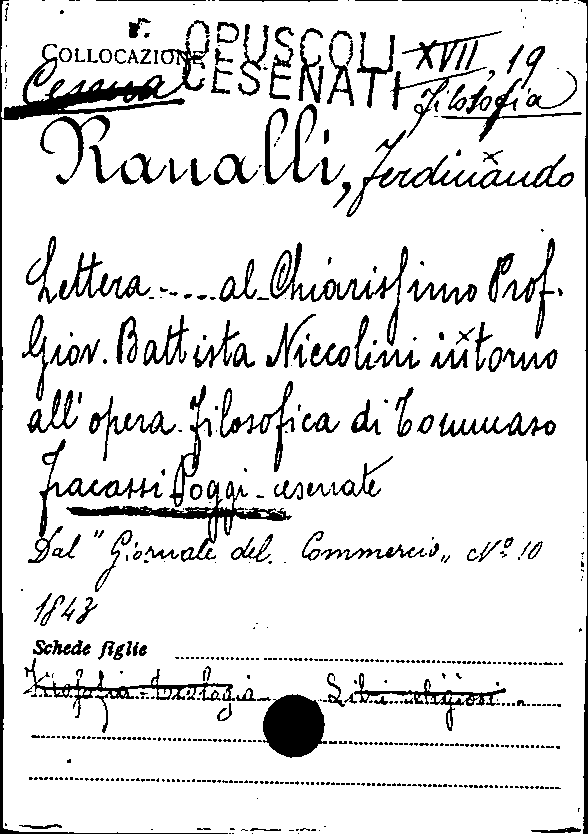 COLLOCAZIONE OPUSCOLI CESENATI XVII, 19
Cesena Filosofia
Ranalli, Ferdinando
Lettera ..... al Chiarissimo Prof.
Giov. Battista Niccolini intorno
all'opera Filosofica di Tommaso
Fracassi Poggi - cesenate
Dal "Giornale del Commercio" Nº 10
1843
Schede figlie
Filosofia - Teologia Libri religiosi.